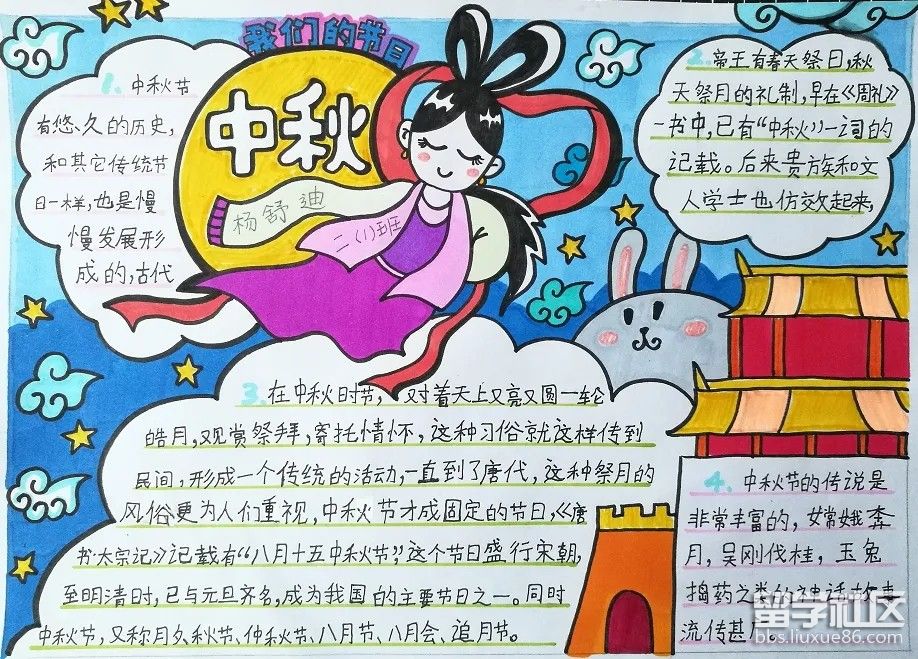 我们的节日
中秋
杨舒迪
二(1)班
1. 中秋节
有悠久的历史,
和其它传统节
日一样,也是慢
慢发展形
成的,古代
2. 帝王有春天祭日,秋
天祭月的礼制,早在《周礼》
一书中,已有“中秋”一词的
记载。后来贵族和文
人学士也仿效起来,
3. 在中秋时节,对着天上又亮又圆一轮
皓月,观赏祭拜,寄托情怀,这种习俗就这样传到
民间,形成一个传统的活动,一直到了唐代,这种祭月的
风俗更为人们重视,中秋节才成固定的节日,《唐
书·太宗记》记载有“八月十五中秋节”,这个节日盛行宋朝,
至明清时,已与元旦齐名,成为我国的主要节日之一。同时
中秋节,又称月夕秋节、仲秋节、八月节、八月会、追月节。
4. 中秋节的传说是
非常丰富的,嫦娥奔
月,吴刚伐桂,玉兔
捣药之类的神话故事
流传甚广。
留学社区
bbs.liuxue86.com